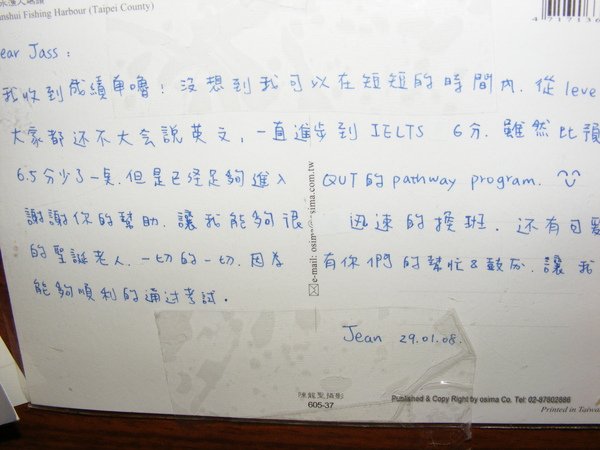 水漁人碼頭
nshui Fishing Harbour (Taipei County)
ear Jass:
我收到成績單嚕!沒想到我可以在短短的時間內.從leve
大家都还不大会說英文,一直進步到 IELTS 6分.雖然比預
6.5分少了一臭.但是已经足夠進入 QUT的pathway program.
謝謝你的幫助.讓我能夠很 迅速的換班.还有可爱
的聖誕老人.一切的一切.因為 有你們的幫忙&鼓励.讓我
能夠順利的通过考試。
Jean 29.01.08.
e-mail: osima@osima.com.tw
陳龍聖攝影
605-37
Published & Copy Right by osima Co. Tel: 02-87802886
Printed in Taiwa
4717136